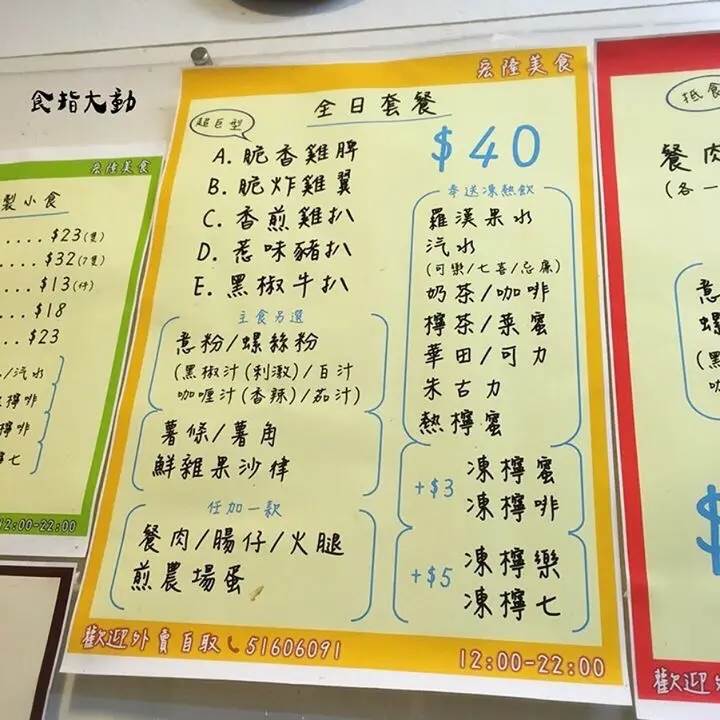 食指大動
宏隆美食
製小食
.... $23(隻)
.... $32(7隻)
.... $13(件)
... $18
... $23
/汽水
檸啡
檸七
12:00-22:00
宏隆美食
全日套餐
超巨型
$40
A. 脆香雞髀
B. 脆炸雞翼
C. 香煎雞扒
D. 惹味豬扒
E. 黑椒牛扒
主食另選
意粉/螺絲粉
(黑椒汁(刺激)/白汁
咖喱汁(香辣)/茄汁)
薯條/薯角
鮮雜果沙律
任加一款
餐肉/腸仔/火腿
煎農場蛋
奉送凍熱飲
羅漢果水
汽水
(可樂/七喜/忌廉)
奶茶/咖啡
檸茶/菜蜜
華田/可力
朱古力
熱檸蜜
+$3
凍檸蜜
凍檸啡
+$5
凍檸樂
凍檸七
歡迎外賣自取 51606091
12:00-22:00
抵食
餐肉
(各一
意
螺
(黑
咖
$
歡迎